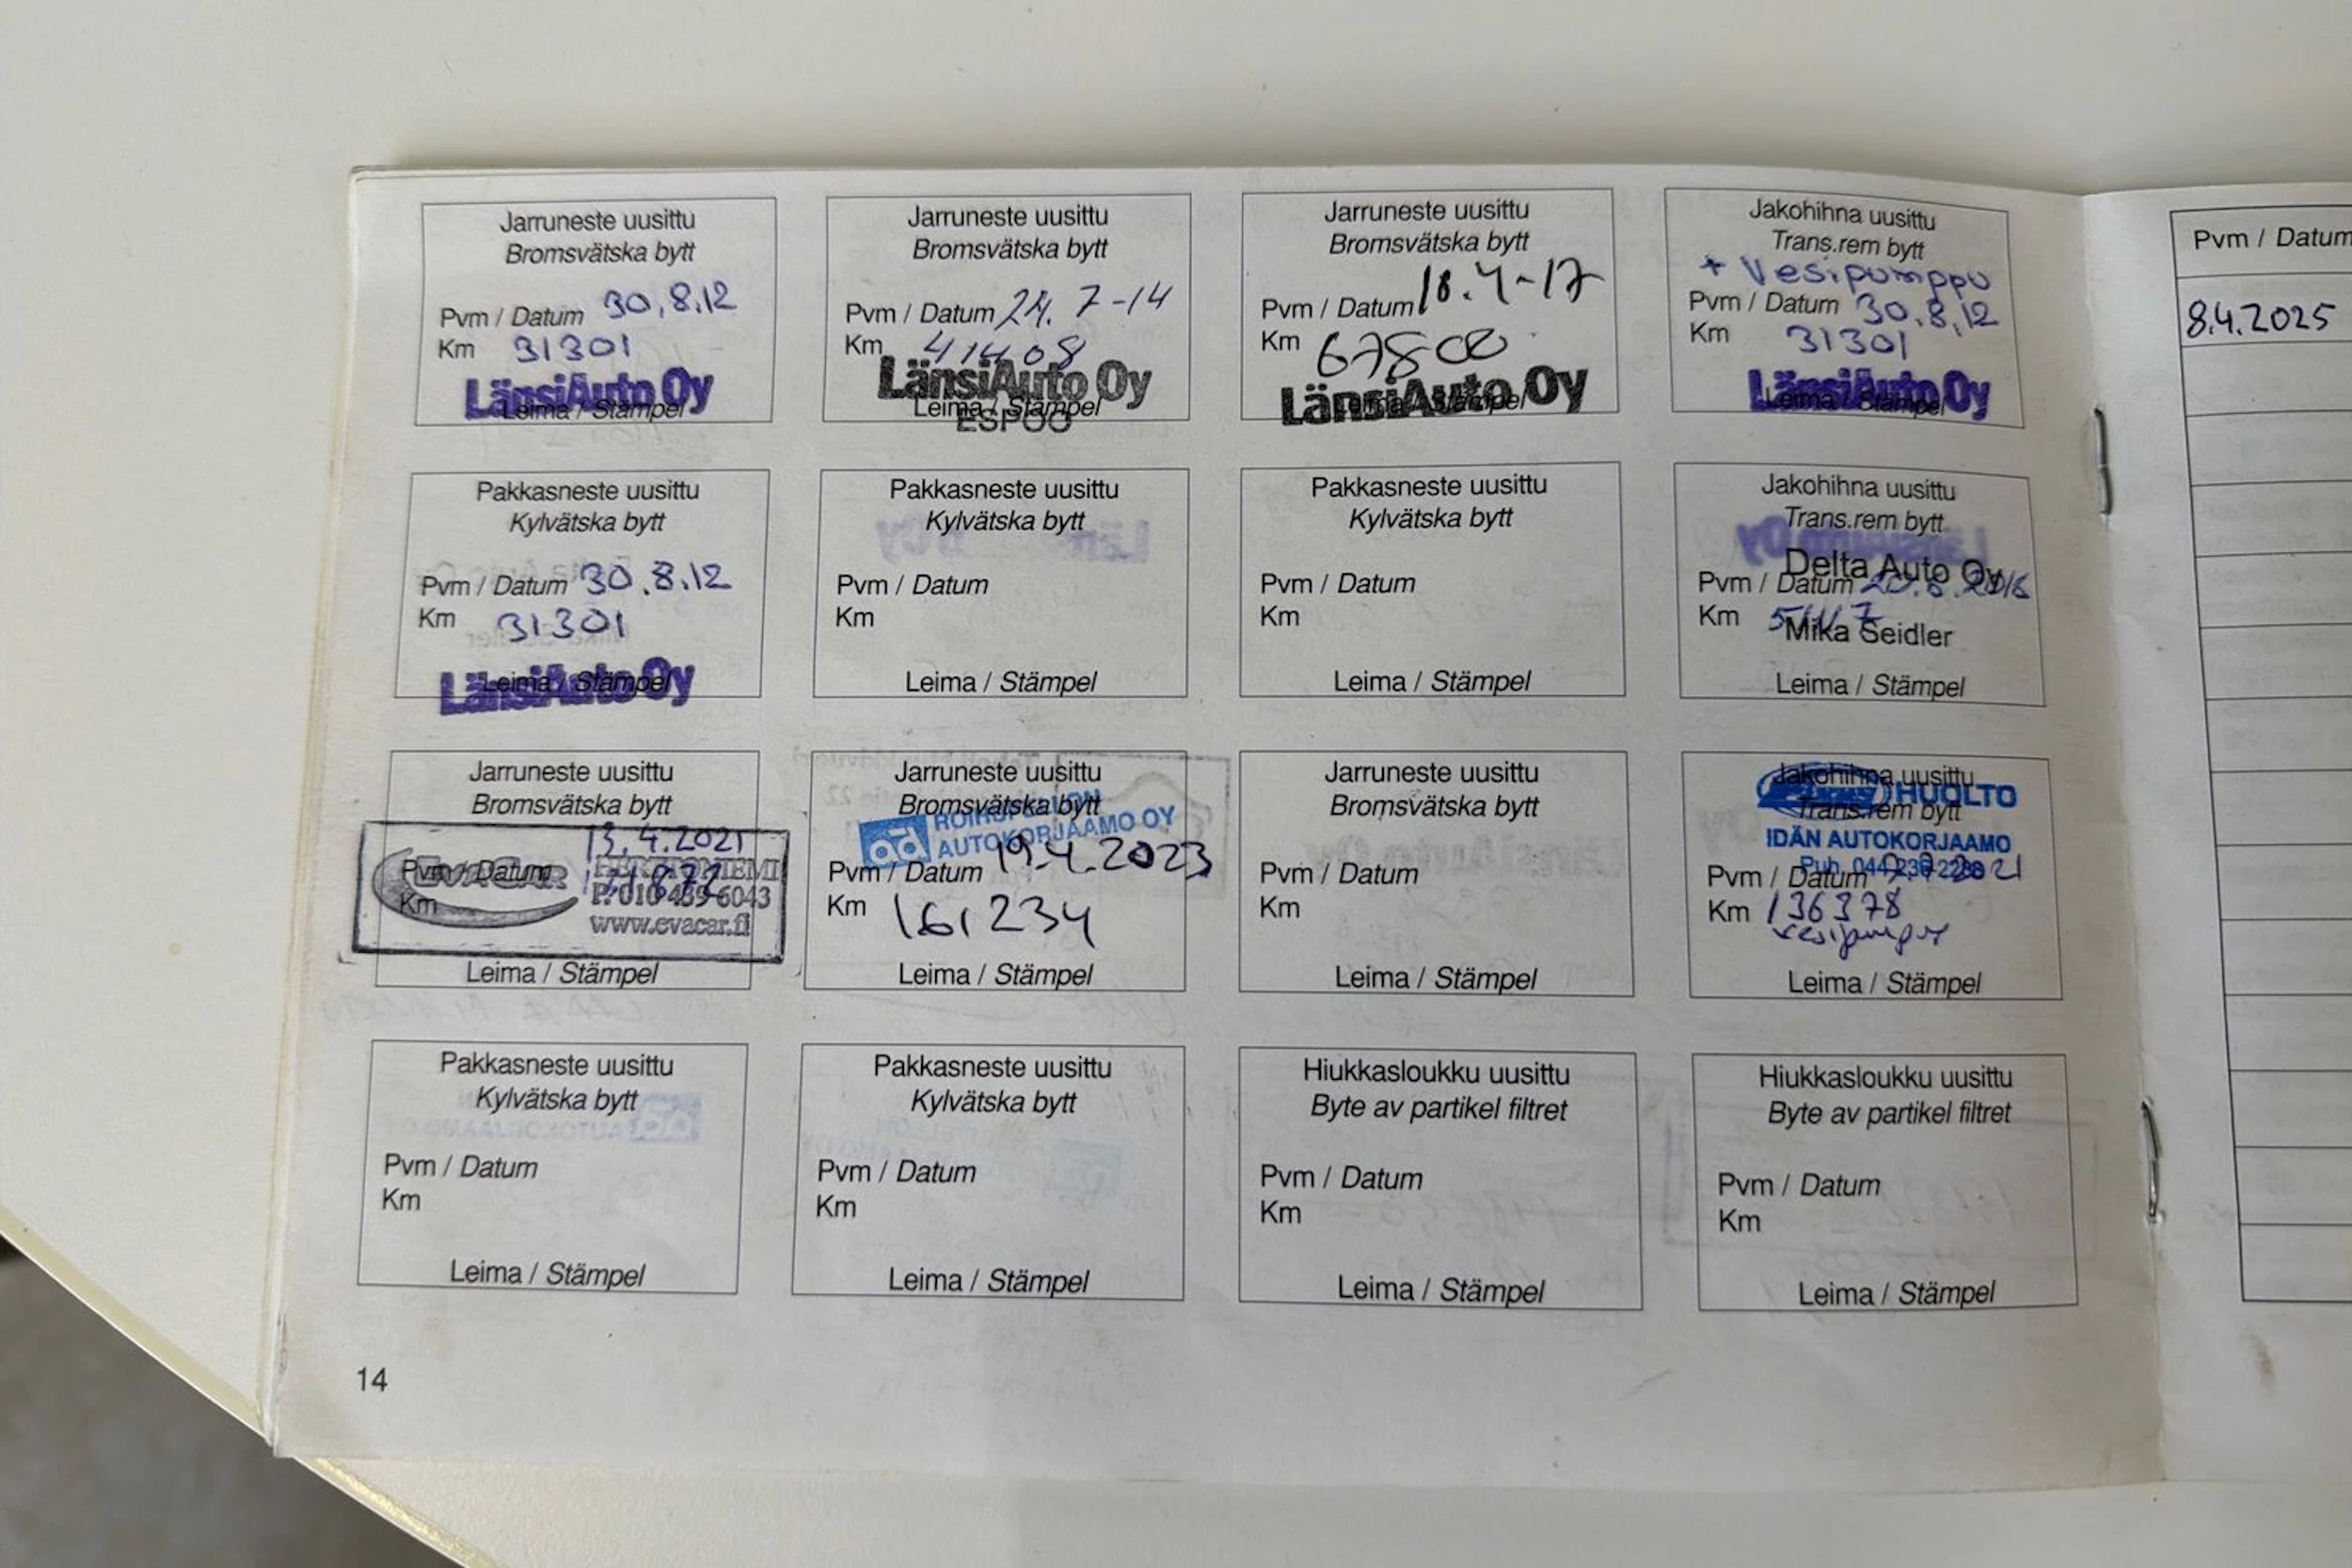 Jarruneste uusittu
Bromsvätska bytt
Pvm / Datum 30.8.12
Km 31301
LänsiAuto Oy
Leima / Stämpel
Jarruneste uusittu
Bromsvätska bytt
Pvm / Datum 24. 7-14
Km 41408
LänsiAuto Oy
Leima / Stämpel
ESPOO
Jarruneste uusittu
Bromsvätska bytt
Pvm / Datum 18.4-17
Km 67800
LänsiAuto Oy
Jakohihna uusittu
Trans.rem bytt
+ Vesipumppu
Pvm / Datum 30.8.12
Km 31301
LänsiAuto Oy
Leima / Stämpel
Pakkasneste uusittu
Kylvätska bytt
Pvm / Datum 30.8.12
Km 31301
LänsiAuto Oy
Leima / Stämpel
Pakkasneste uusittu
Kylvätska bytt
Pvm / Datum
Km
Leima / Stämpel
Pakkasneste uusittu
Kylvätska bytt
Pvm / Datum
Km
Leima / Stämpel
Jakohihna uusittu
Trans.rem bytt
Delta Auto Oy
Pvm / Datum
Km
Mika Seidler
Leima / Stämpel
Jarruneste uusittu
Bromsvätska bytt
13.4.2021
Pvm / Datum
EVACAR
HERTTONIEMI
P. 010 439 6043
Km
www.evacar.fi
Leima / Stämpel
Jarruneste uusittu
Bromsvätska bytt
ROIHUPELLON
AUTOKORJAAMO OY
Pvm / Datum 19.4.2023
Km 161234
Leima / Stämpel
Jarruneste uusittu
Bromsvätska bytt
Pvm / Datum
Km
Leima / Stämpel
Jakohihna uusittu
HUOLTO
Trans.rem bytt
IDÄN AUTOKORJAAMO
Puh. 044 236 2288
Pvm / Datum
Km 136378
vesipumppu
Leima / Stämpel
Pakkasneste uusittu
Kylvätska bytt
Pvm / Datum
Km
Leima / Stämpel
Pakkasneste uusittu
Kylvätska bytt
Pvm / Datum
Km
Leima / Stämpel
Hiukkasloukku uusittu
Byte av partikel filtret
Pvm / Datum
Km
Leima / Stämpel
Hiukkasloukku uusittu
Byte av partikel filtret
Pvm / Datum
Km
Leima / Stämpel
14
Pvm / Datum
8.4.2025